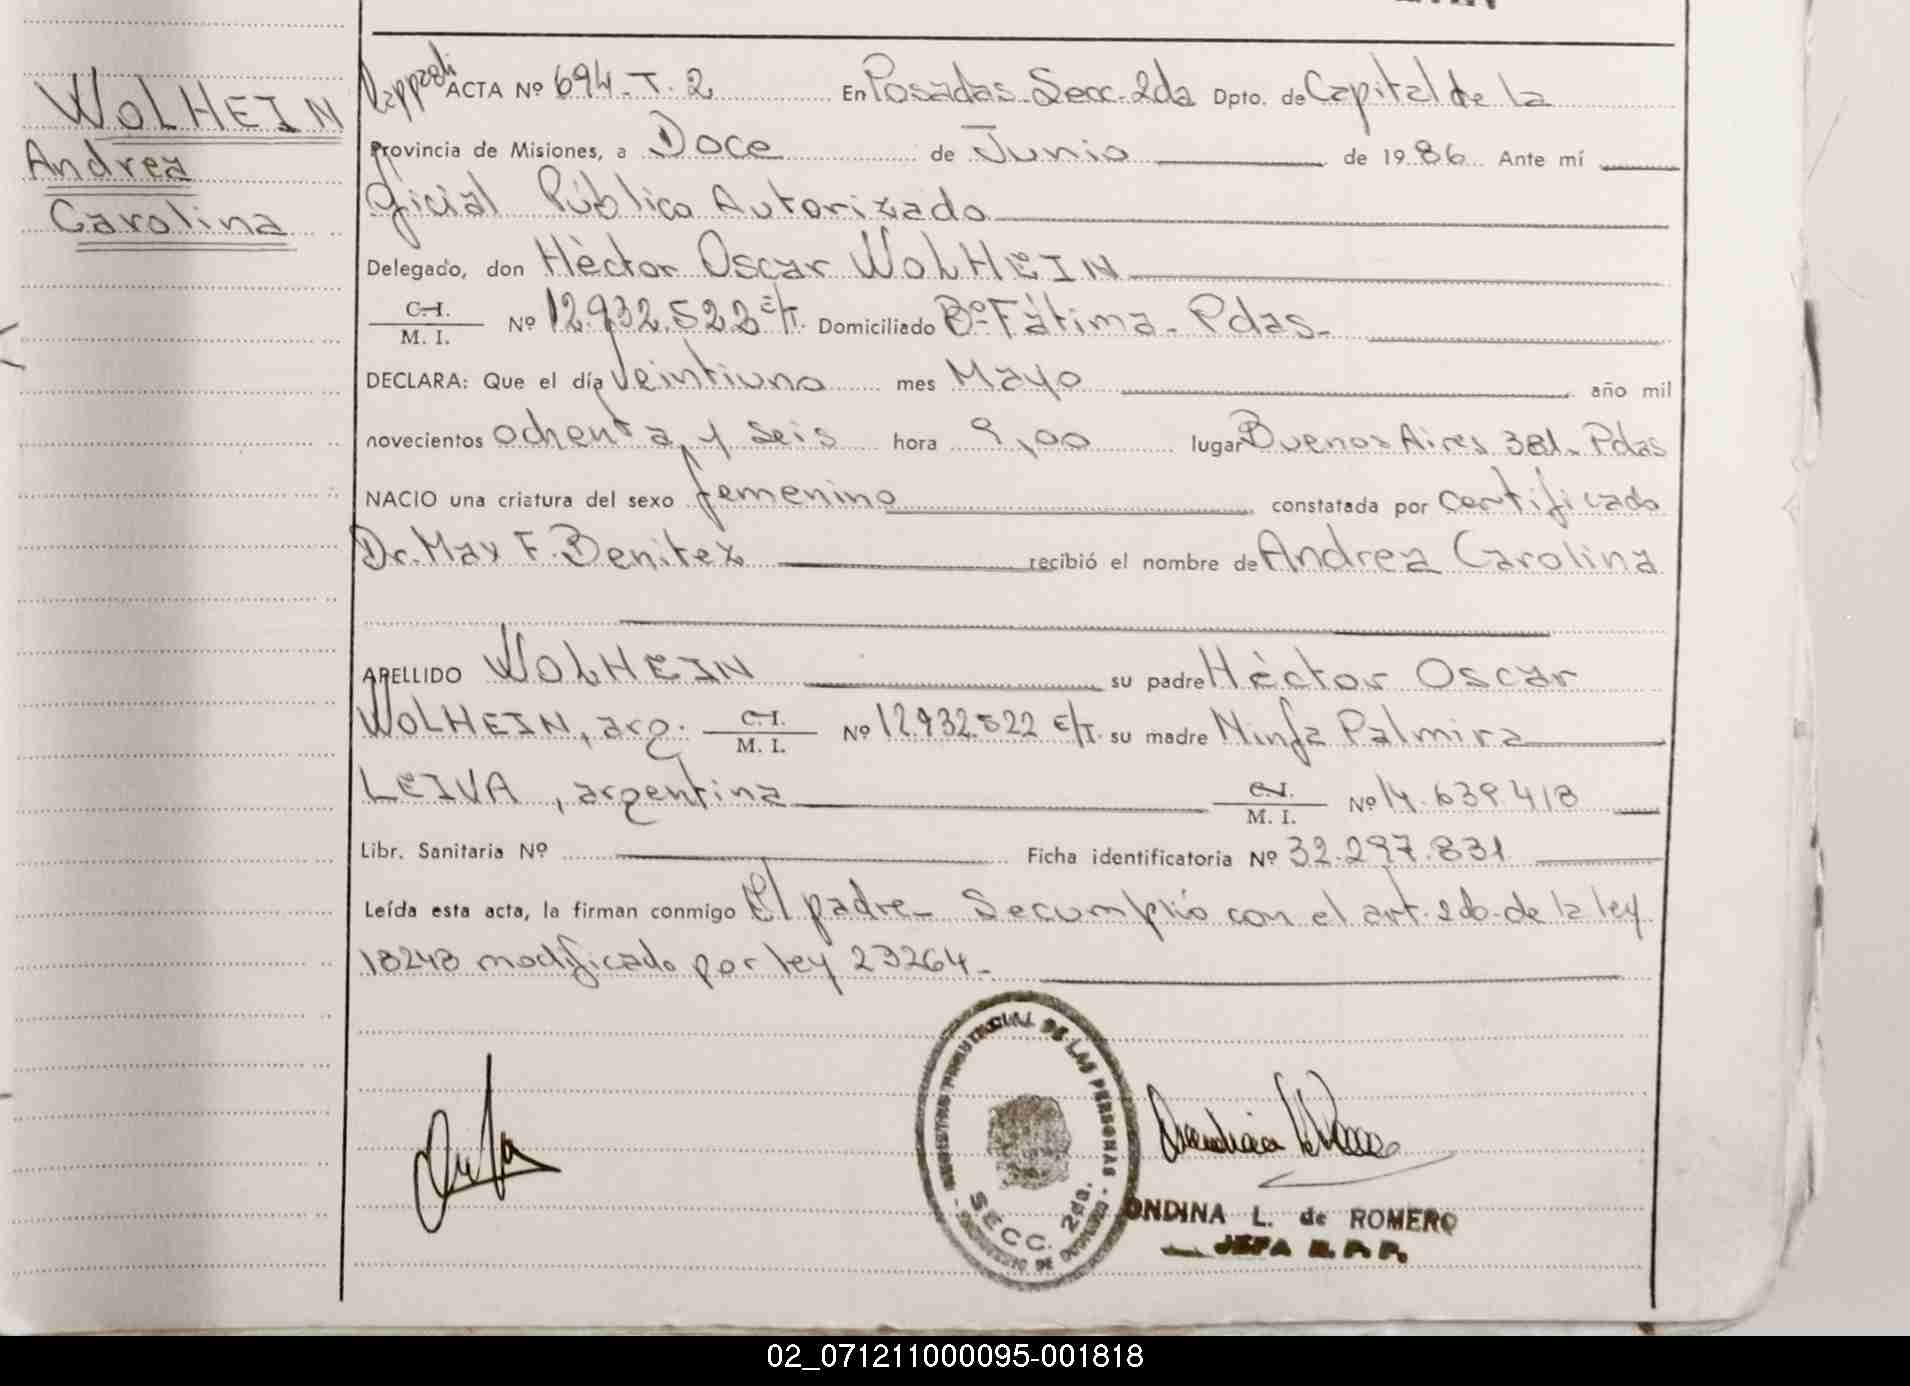 WOLHEIN
Andrea
Carolina
ACTA Nº 694-T.2 En Posadas-Secc.2da Dpto. de Capital de la
Provincia de Misiones, a Doce de Junio de 1986 Ante mí
Oficial Público Autorizado
Delegado, don Hèctor Oscar WOLHEIN
C.I.
M. I. Nº 12.932.522 E/T. Domiciliado Bº Fátima- Pdas-
DECLARA: Que el día Veintiuno mes Mayo año mil
novecientos ochenta y seis hora 9,00 lugar Buenos Aires 381- Pdas
NACIO una criatura del sexo femenino constatada por certificado
Dr. Max F. Benitez recibió el nombre de Andrea Carolina
APELLIDO WOLHEIN su padre Hèctor Oscar
WOLHEIN, arg. C.I.
M. I. Nº 12.932.522 E/T. su madre Ninfa Palmira
LEIVA, argentina C.I.
M. I. Nº 14.639.418
Libr. Sanitaria Nº Ficha identificatoria Nº 32.297.831
Leída esta acta, la firman conmigo El padre- Se cumplió con el art. 2do de la ley
18248 modificado por ley 23264-
REGISTRO PROVINCIAL DE LAS PERSONAS
SECC. 2da.
ONDINA L. de ROMERO
JEFA R. P. P.
02_071211000095-001818